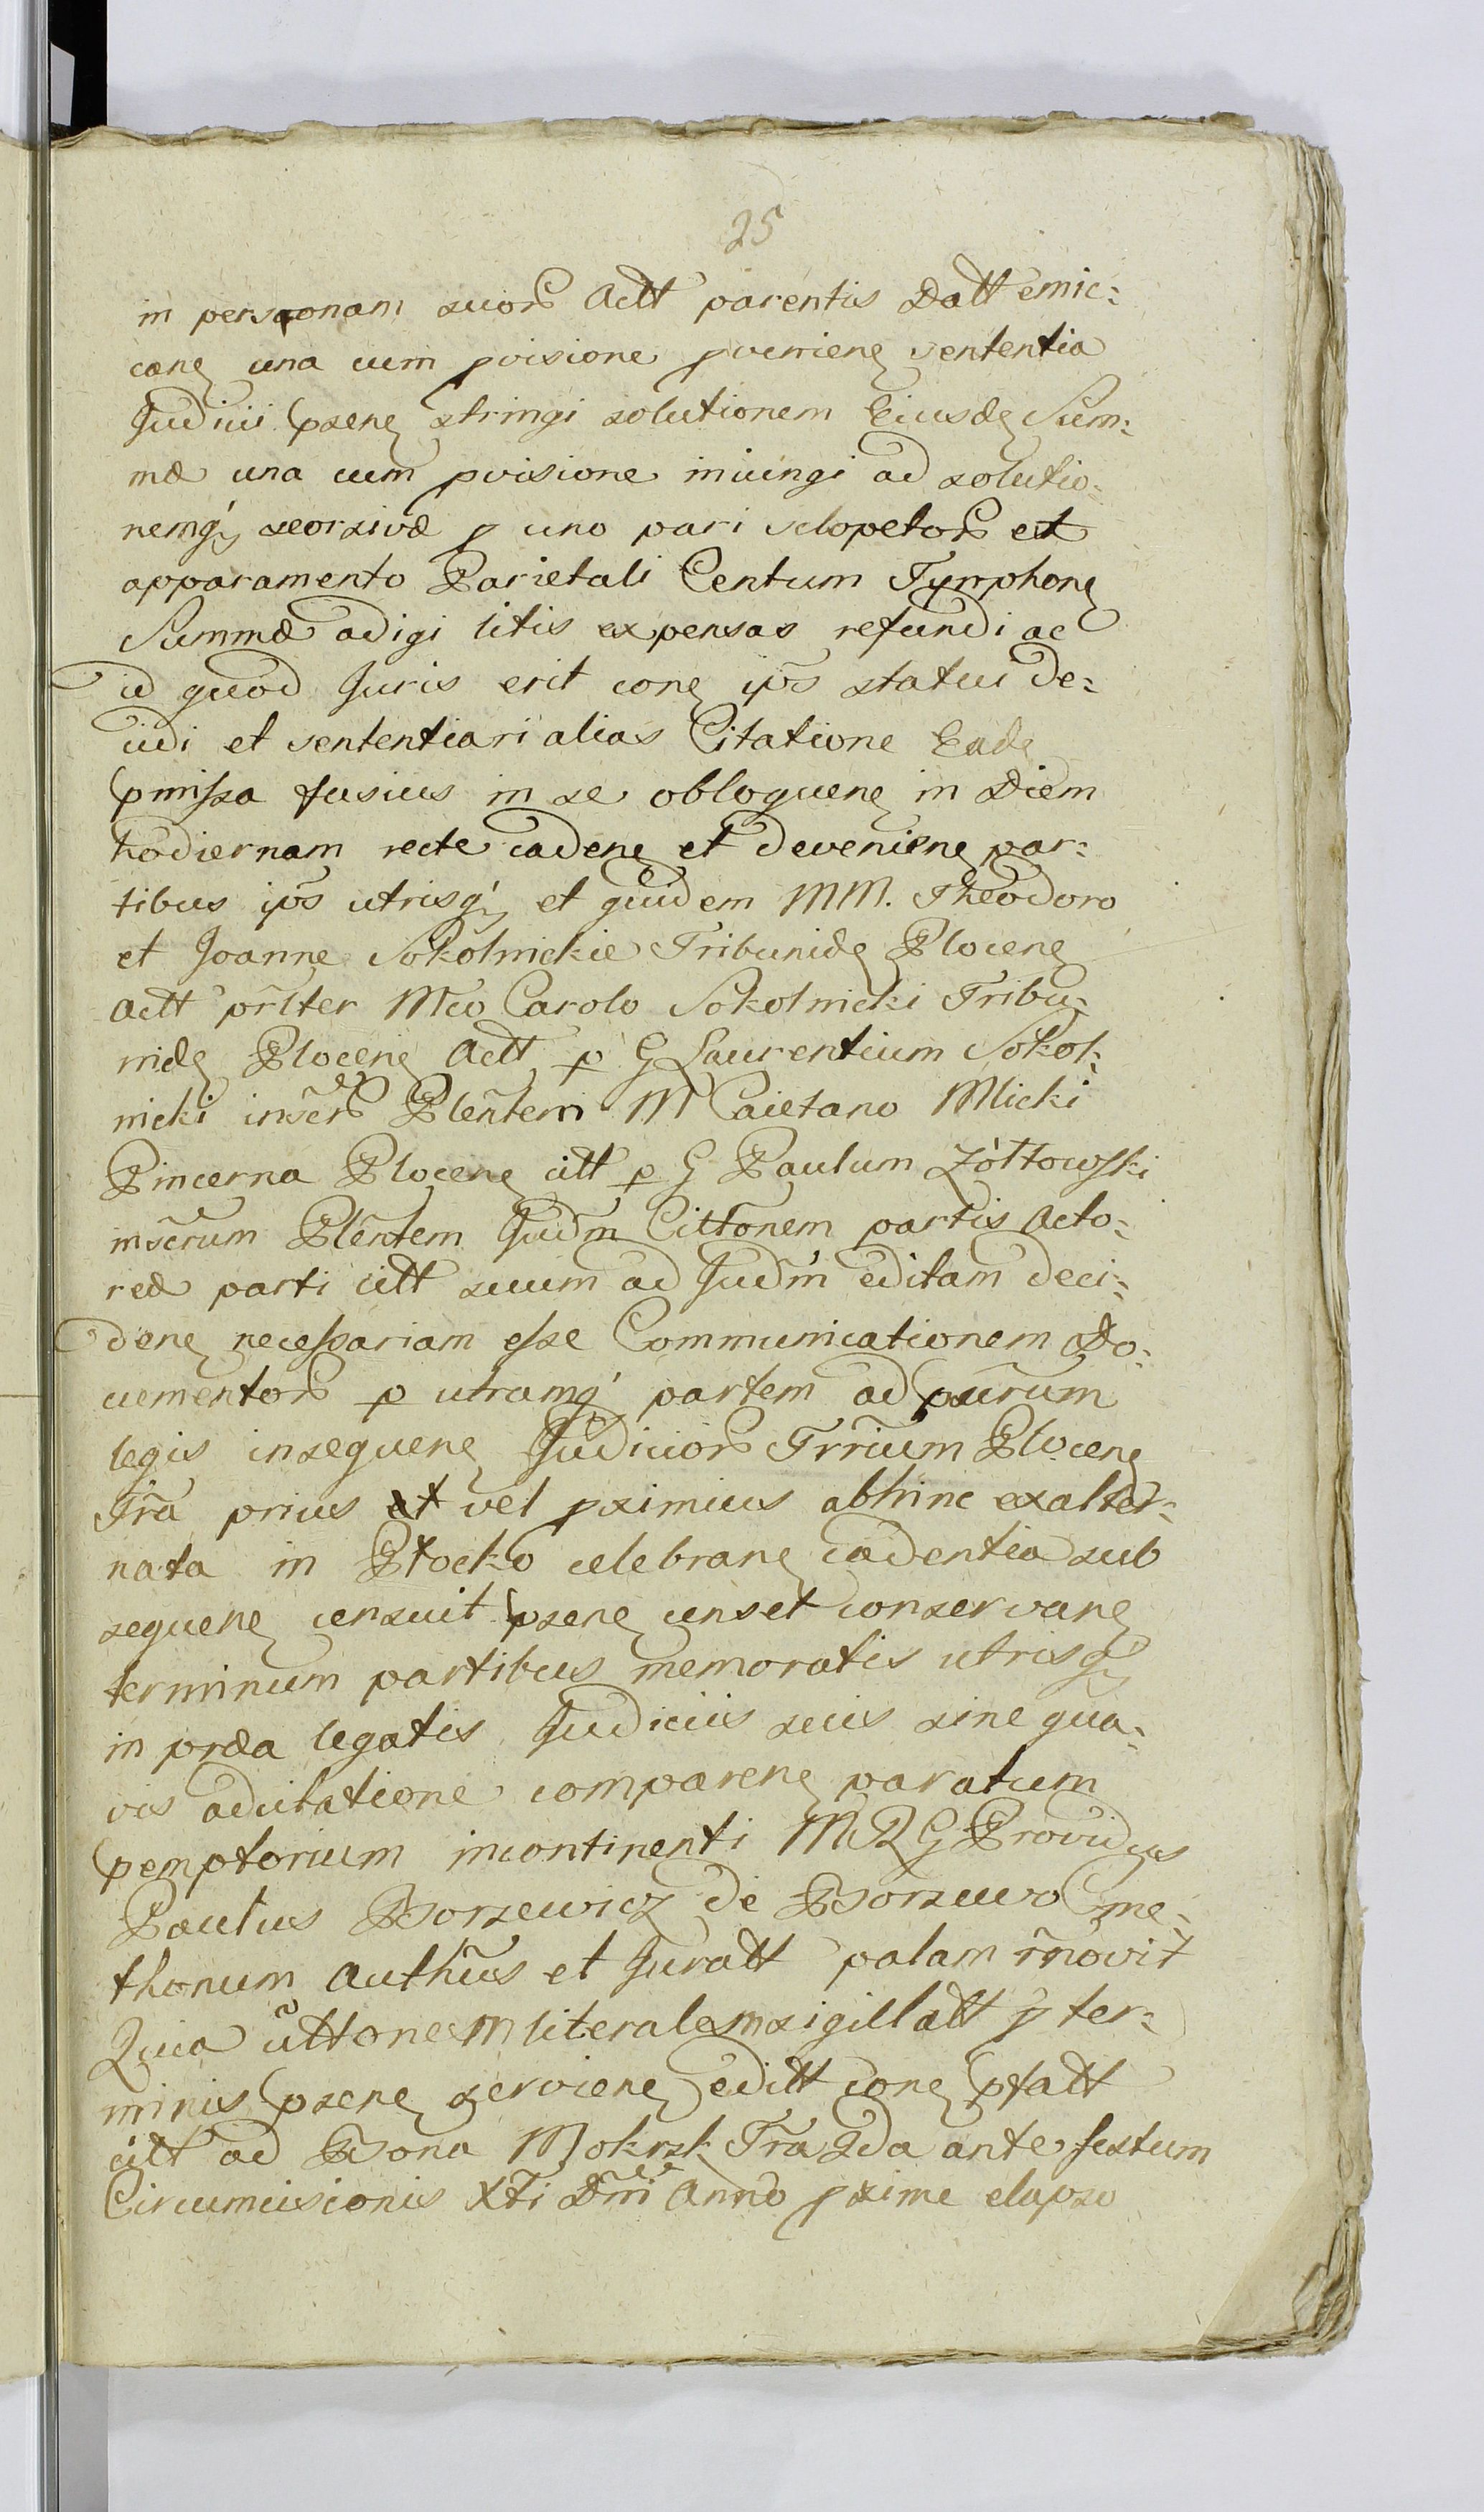 25
in personam suorũ Actt parentis Datt emic:
canę una cum pvisione pvenienę sententia
Judicii psenę stringi solutionem Eiusdę Sum:
mæ una cum pvisione iniungi ad solutio:
nemq́ȝ seorsivæ p uno pari sclopetorũ et
apparamento Parietali Centum Tymphonę
Summæ adigi litis expensas refundi ac
id quod Juris erit conę ip̃s statui de:
cidi et sententiari alias Citatione Eadę
pmissa fusius in se obloquenę in Diem
hodiernam recte cadenę et devenienę par:
tibus ip̃s utrisq́ȝ et quidem MM. Theodoro
et Joanne Sokolnickie Tribunidę Plocenę
Actt pr̃lter Mco Carolo Sokolnicki Tribu:
nidę Plocenę Actt p G Laurentium Sokol:
nicki inscr̃ Plen̄tem M Caietano Mlicki
Pincerna Plocenę citt p G Paulum Zółtowski
inscr̃um Plen̄tem Judm̄ Citt̃onem partis Acto:
reæ parti citt suum ad Judm̄ editam deci:
denę necessariam esse Communicationem Do:
cumentorũ p utramq́ partem ad psūrum
legis insequenę Judiciorũ Trr̃ium Plocenę
Tr̃a prius et vel pximius abhinc exalter:
nata in Płocko celebranę cadentia sub
sequenę censuit psenę censet conservanę
terminum partibus memoratis utrisq́ȝ
in præa legatis Judiciis secus sine qua:
vis adcitatione comparenę paratum
pemptorium incontinenti MRG Providus
Paulus Borzewicz de Borzewo Cme:
thonum Auth̃us et Juratt palam r̃novit
Quia citt̃onem literalem sigillatt p ter:
minis psenę servienę editt conę pfatt
citt ad Bona Mokrsk Tr̃a 2da ante festum
Circumcisionis Xti Dm̃i Anno pxime elapso